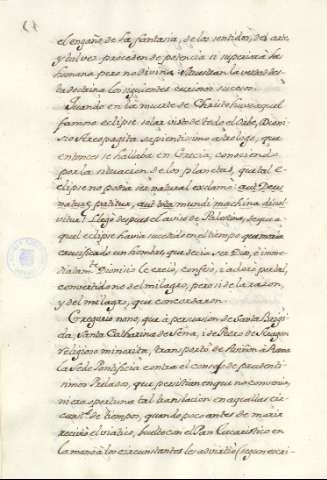 el engaño de la fantasia, de los sentidos, del arte,
y tal vez proceden de potencia superior à la
humana pero no divina. Muestran la verdad des
ta doctrina los siguientes curiosos sucesos.
Quando en la muerte de Christo huvo aquel
famoso eclipse solar visto de todo el Orbe, Dioni
sio Areopagita sapientissimo astrologo, que
entonces se hallaba en Grecia, conociendo
por la situacion de los planetas, que tal e
clipse no podia ser natural exclamò: aut Deus
naturæ patitur, aut mundi machina dissol
vitur. Llegò despues el aviso de Palestina, de que a
quel eclipse havia sucedido en el tiempo que moria
crucificado un hombre, que decia ser Dios, è
Dionisio le creiò, confesò, i adorò por tal,
convertidome del milagro, pero si de la razon,
y del milagro, que concordaron.
Gregorio nono, que à persuasion de Santa Brigi
da, Santa Catharina de Sena, i de Pedro de Aragon
religioso minorita, transportò de Aviñon à Roma
la Sede Pontificia contra el consejo de prudenti
simos Prelados, que persistian en que no convenia,
ni era oportuna tal translacion en aquellas cir
de tiempos, quando poco antes de morir
recibiò el viatico, buelto con el Pan Eucaristico en
la mano à los circunstantes les advirtiò (segun escri-